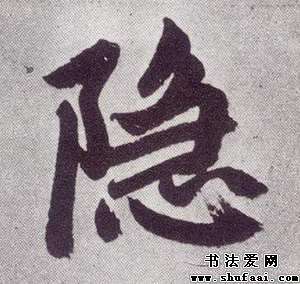 隐
书法爱网
www.shufaai.com